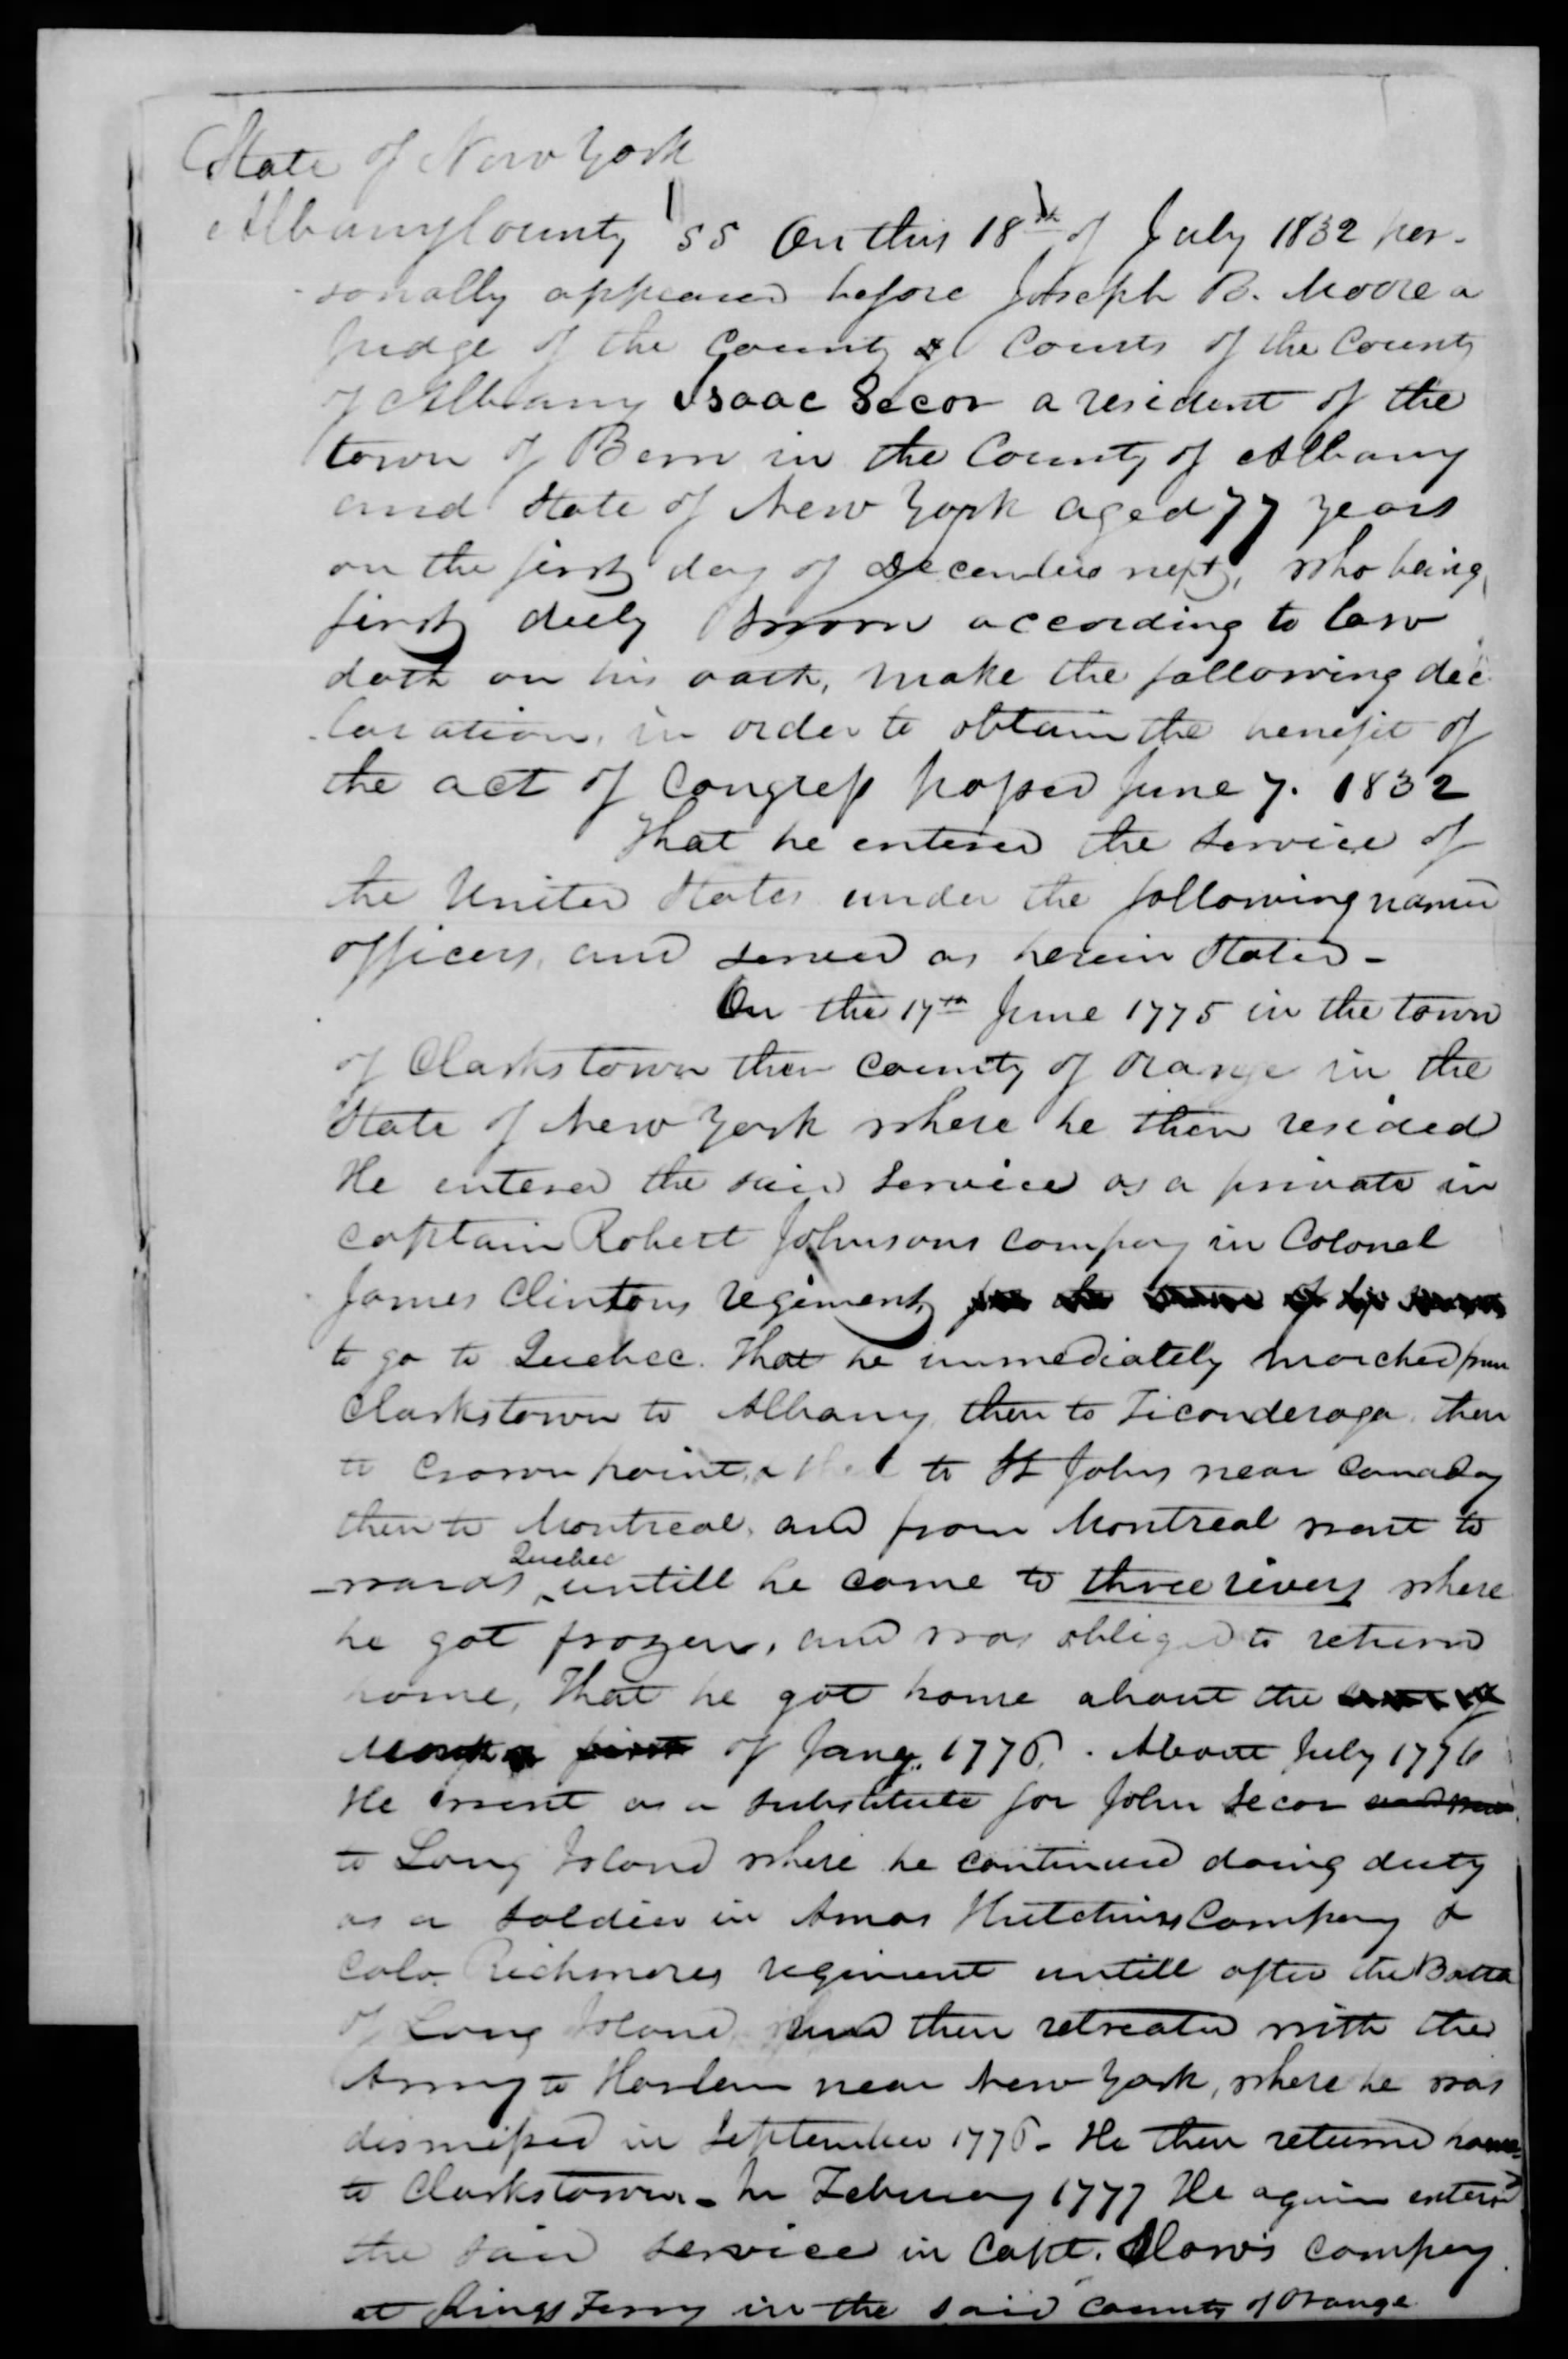 State of New York
Albany County ss On this 18th of July 1832 per-
-sonally appeared before Joseph B. Moore a
judge of the County Courts of the County
of Albany Isaac Secor a resident of the
town of Bern in the County of Albany
and State of New York aged 77 years
on the first day of December next, who being
first duly sworn according to law
doth on his oath, make the following dec
-laration, in order to obtain the benefit of
the act of Congress passed June 7. 1832
That he entered the service of
the United States under the following named
officers, and served as herein stated -
On the 17th June 1775 in the town
of Clarkstown then County of Orange in the
State of New York where he then resided
He entered the said service as a private in
captain Robert Johnsons company in Colonel
James Clintons regiment,
to go to Quebec. That he immediately marched from
Clarkstown to Albany then to Ticonderoga, then
to Crown point, to St Johns near Canada
then to Montreal, and from Montreal went to
-wards Quebec untill he come to three rivers where
he got frozen, and was obliged to return
home, That he got home about the
first of Jany. 1776. About July 1776
He went as a substitute for John Secor
to Long Island where he continued doing duty
as a soldier in Amos Hutchins Company &
Colo. regiment untill after the Battle
of Long Island, and then retreated with the
Army to Harlem near New York, where he was
dismissed in September 1776 - He then returned home
to Clarkstown - In February 1777 He again entered
the said service in Capt. company
at Kings Ferry in the said County of Orange